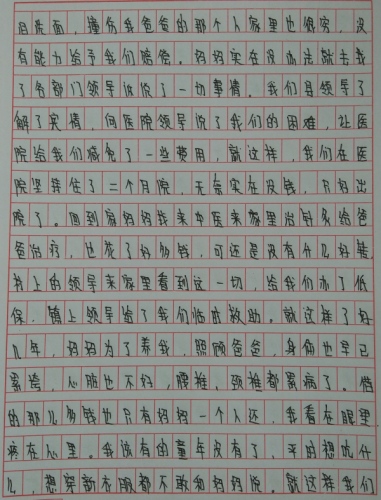 泪洗面，撞伤我爸爸的那个人家里也很穷，没
有能力给予我们赔偿。妈妈实在没办法就去找
了各部门领导诉说了一切事情。我们县领导了
解了实情，向医院领导说了我们的困难，让医
院给我们减免了一些费用，就这样，我们在医
院坚持住了二个月院，无奈实在没钱，只好出
院了。回到家妈妈找来中医来家里治针灸给爸
爸治疗，也花了好多钱，可还是没有什么好转。
村上的领导来家里看到这一切，给我们办了低
保，镇上领导给了我们临时救助。就这样了好
几年，妈妈为了养我，照顾爸爸，身体也早已
累垮，心脏也不好，腰椎，颈椎都累病了。借
的那么多钱也只有妈妈一个人还，我看在眼里
疼在心里。我该有的童年没有了，平时想吃什
么，想穿新衣服都不敢和妈妈说。就这样我们